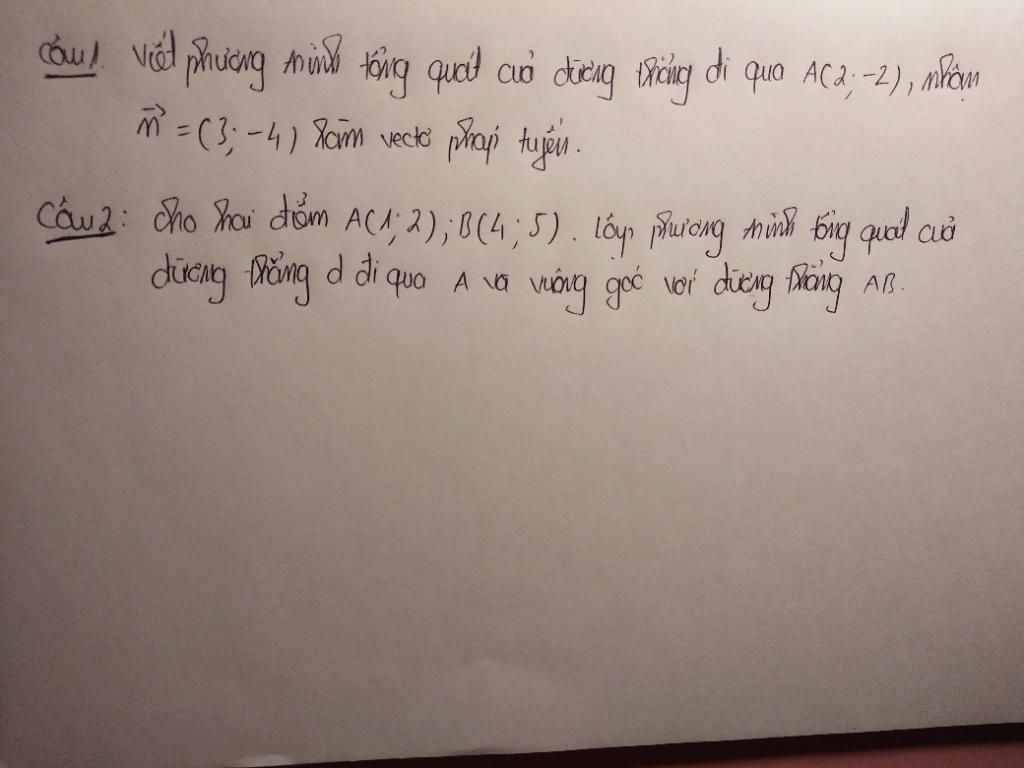 Câu 1. Viết phương trình tổng quát của đường thẳng đi qua A(2; -2), nhận
n⃗ = (3; -4) làm vectơ pháp tuyến.
Câu 2: Cho hai điểm A(1; 2); B(4; 5). Lập phương trình tổng quát của
đường thẳng d đi qua A và vuông góc với đường thẳng AB.